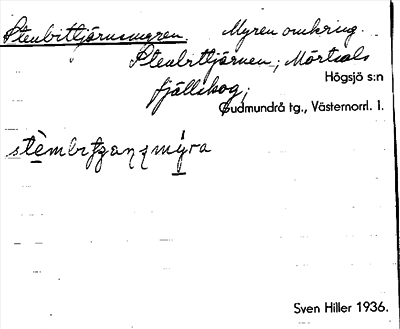 Stenbittjärnsmyren. Myren omkring
Stenbittjärnen; Mörtsals
fjällskog;
Högsjö s:n
Gudmundrå tg., Västernorrl. l.
Sven Hiller 1936.